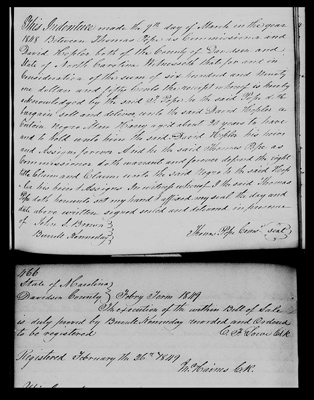 This Indenture made the 9th day of March in the year
1848 Between Thomas Pope as Commissioner and
David Hepler both of the County of Davidson and
State of North Carolina Witnesseth that for and in
Consideration of the sum of six hundred and ninety
one dollars and fifty Cents the receipt whereof is hereby
acknowledged by the said T. Pope he the said Pope doth
Bargain sell and deliver unto the said David Hepler a
Certain Negro Man aged about years to have
and to hold unto him the said David Hepler his heirs
and Assigns forever And he the said Thomas Pope as
Commissioner doth warrant and forever defend the right
title Claim and Claims unto the said Negro to the said Hepler
his heirs & Assigns In witness whereof I the said Thomas
Pope doth hereunto set my hand & affixed my seal the day and
date above written signed sealed and delivered in presence
of John S. Brown
Burrell Kinneday
Thomas Pope Comr (seal)
466
State of N Carolina
Davidson County Febry Term 1849
The execution of the within Bill of Sale
is duly proved by Kinneday recorded and Ordered
to be registered C. F. Lowe Clk
Registered February the 26th 1849
Haines C.R.